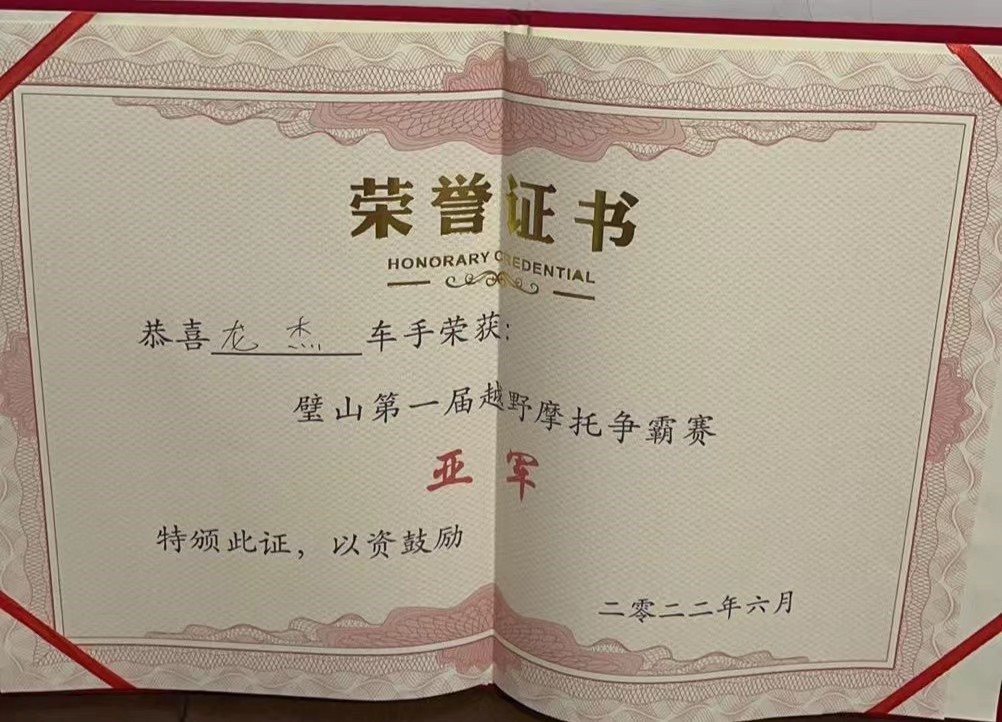 荣誉证书
HONORARY CREDENTIAL
恭喜龙杰车手荣获:
璧山第一届越野摩托争霸赛
亚军
特颁此证，以资鼓励
二零二二年六月